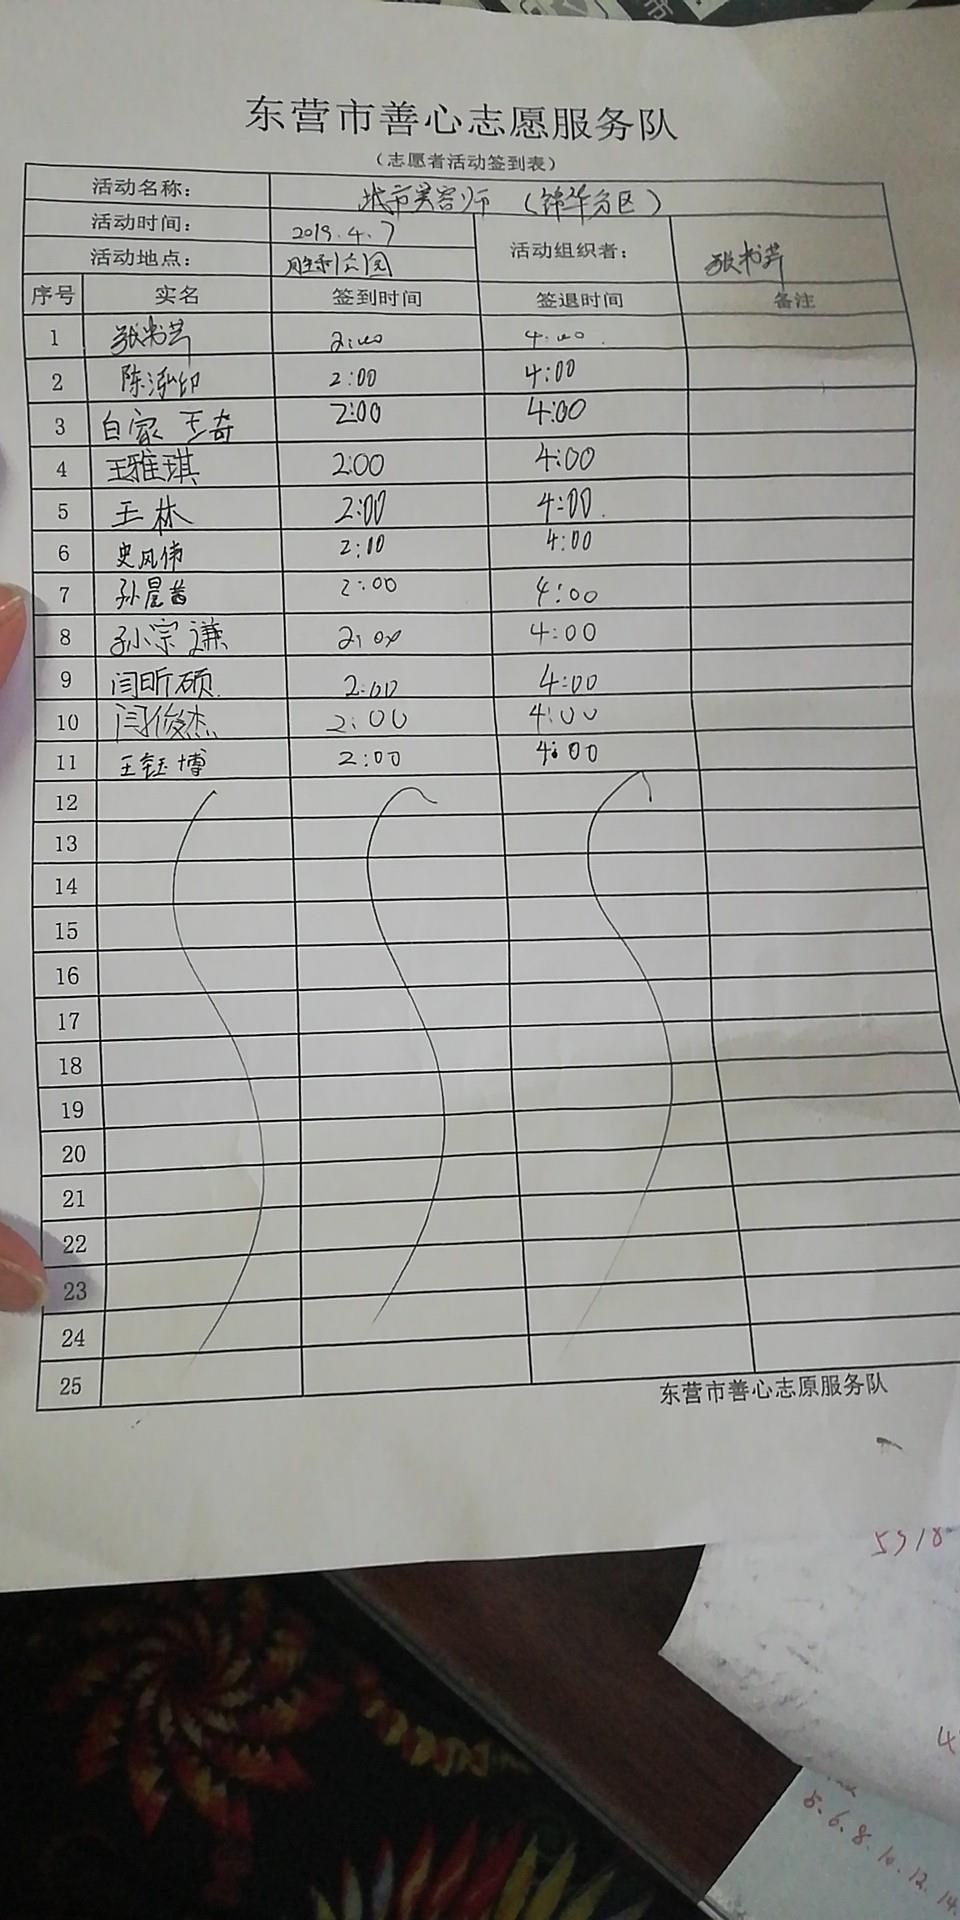 东营市善心志愿服务队
（志愿者活动签到表）
活动名称： 城市美容师（锦华分区）
活动时间： 2019.4.7 活动组织者： 张书芹
活动地点： 胜利公园
序号 实名 签到时间 签退时间 备注
1 张书芹 2:00 4:00
2 陈泓印 2:00 4:00
3 白家 王奇 2:00 4:00
4 王雅琪 2:00 4:00
5 王林 2:00 4:00
6 史风伟 2:10 4:00
7 孙 2:00 4:00
8 孙宗谦 2:00 4:00
9 闫昕硕 2:00 4:00
10 闫俊杰 2:00 4:00
11 王钰博 2:00 4:00
12
13
14
15
16
17
18
19
20
21
22
23
24
25
东营市善心志原服务队
5.6.8.10.12.14.